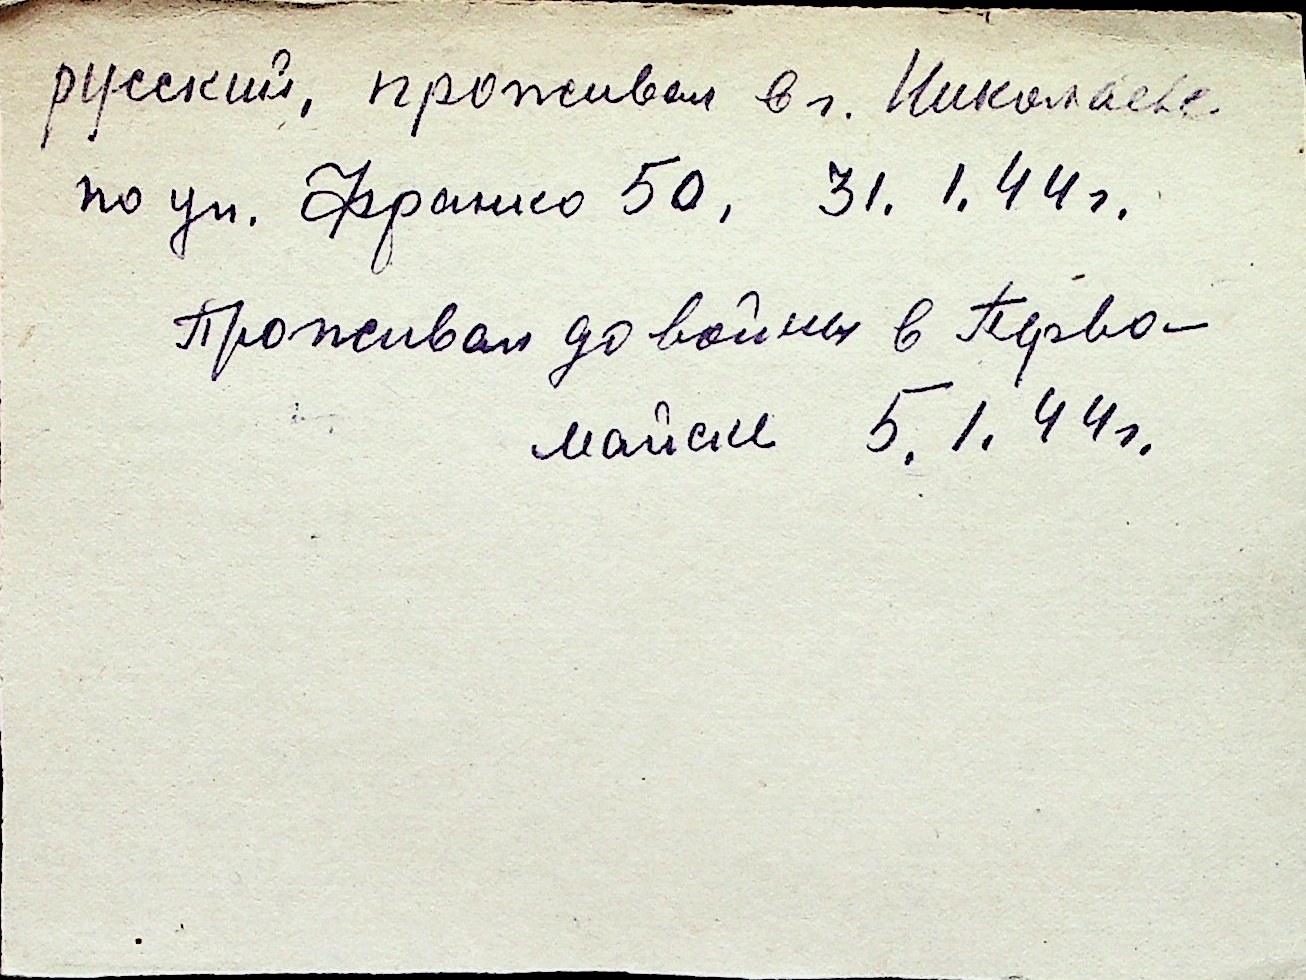 русский, проживал в г. Николаеве
по ул. Франко 50, 31. 1. 44 г.
Проживал до войны в Перво-
майске 5. 1. 44 г.